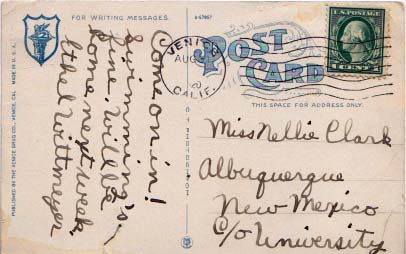 FOR WRITING MESSAGES.
Come on in!
Swimming's
fine. Will be
home next week.
Ethel Wittmeyer
PUBLISHED BY THE VENICE DRUG CO., VENICE, CAL.
MADE IN U. S. A.
POST CARD
THIS SPACE FOR ADDRESS ONLY.
VENICE
AUG
CALIF.
U.S. POSTAGE
1 CENT 1
Miss Nellie Clark
Albuquerque
New Mexico
C/o University